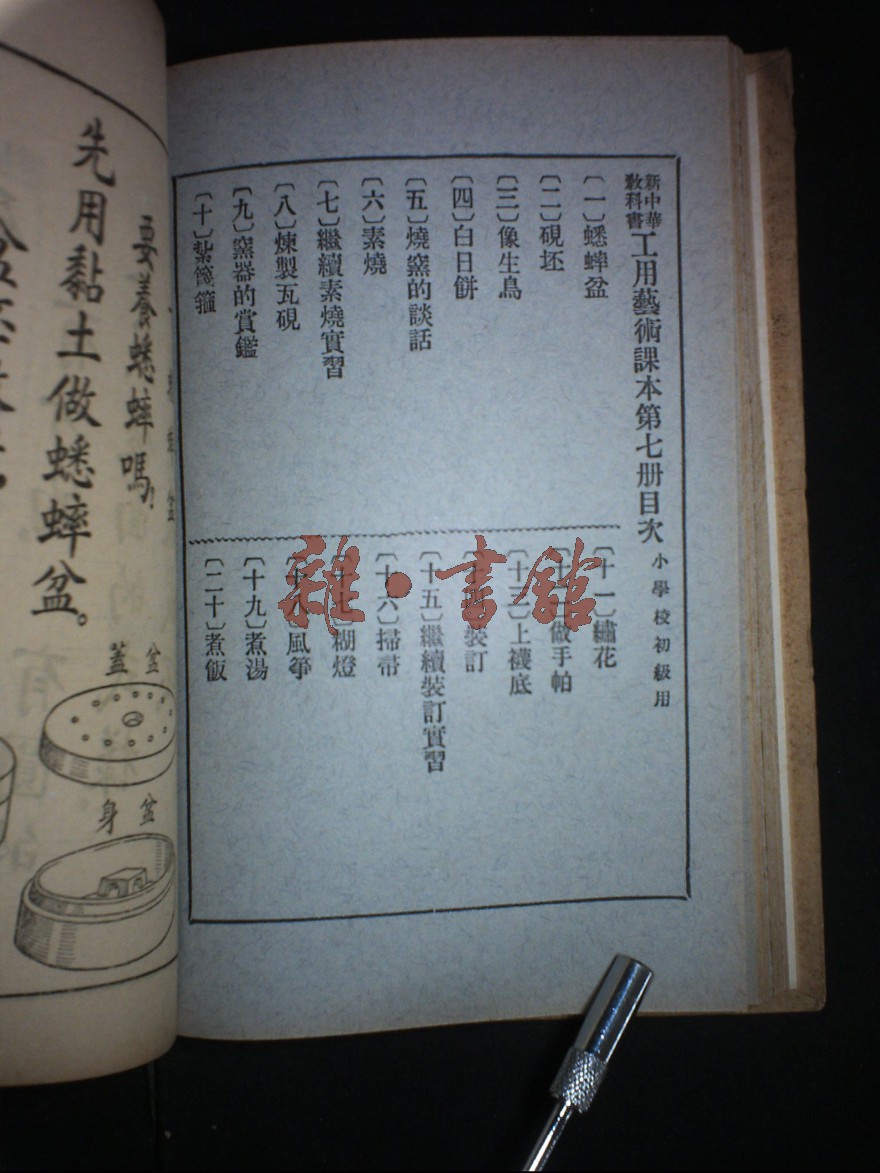 新中華教科書工用藝術課本第七册目次 小學校初級用
〔一〕蟋蟀盆
〔二〕硯坯
〔三〕像生鳥
〔四〕白日餅
〔五〕燒窰的談話
〔六〕素燒
〔七〕繼續素燒實習
〔八〕煉製瓦硯
〔九〕窰器的賞鑑
〔十〕紮篾箍
〔十一〕繡花
做手帕
〔十三〕上襪底
裝訂
〔十五〕繼續裝訂實習
〔十六〕掃帚
糊燈
風箏
〔十九〕煮湯
〔二十〕煮飯
雜·書館
要養蟋蟀嗎？
先用黏土做蟋蟀盆。
盆蓋
盆身